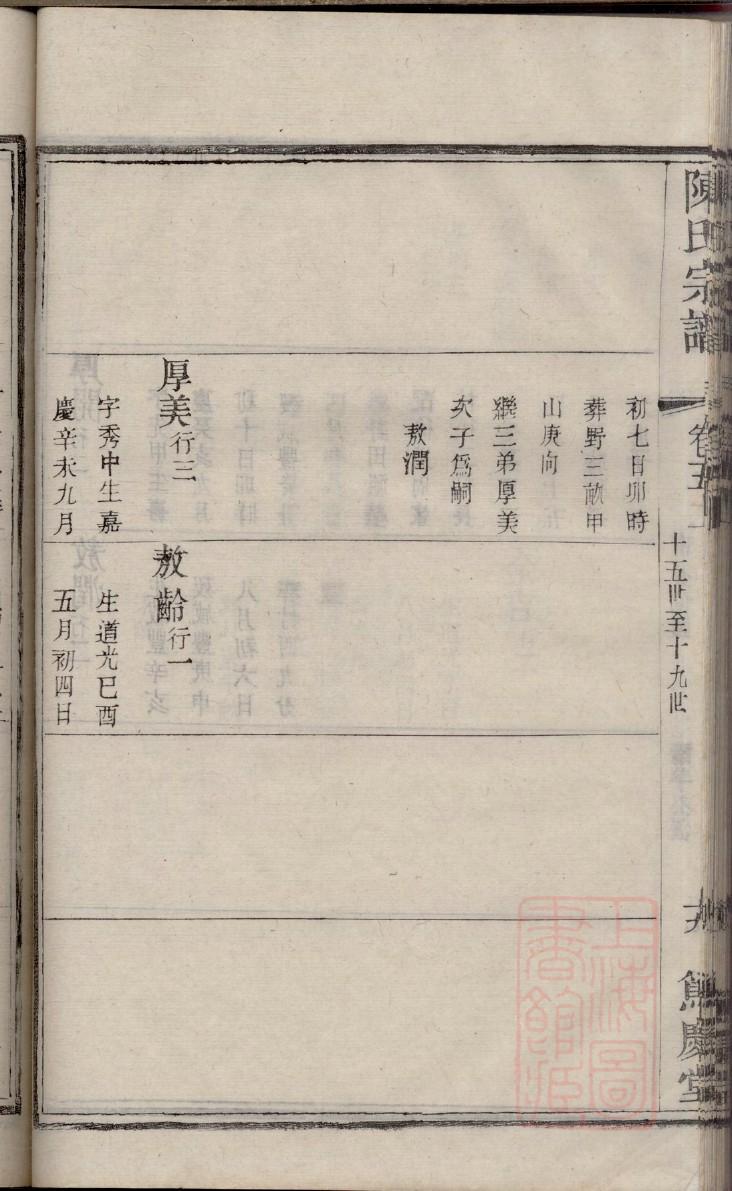 陳氏宗譜
卷五上
十五世至十九世
慶堂
初七日卯時
葬野三畝甲
山庚向
繼三弟厚美
次子爲嗣
敖潤
厚美行三
字秀中生嘉
慶辛未九月
敖齡行一
生道光己酉
五月初四日
上海圖
書館藏